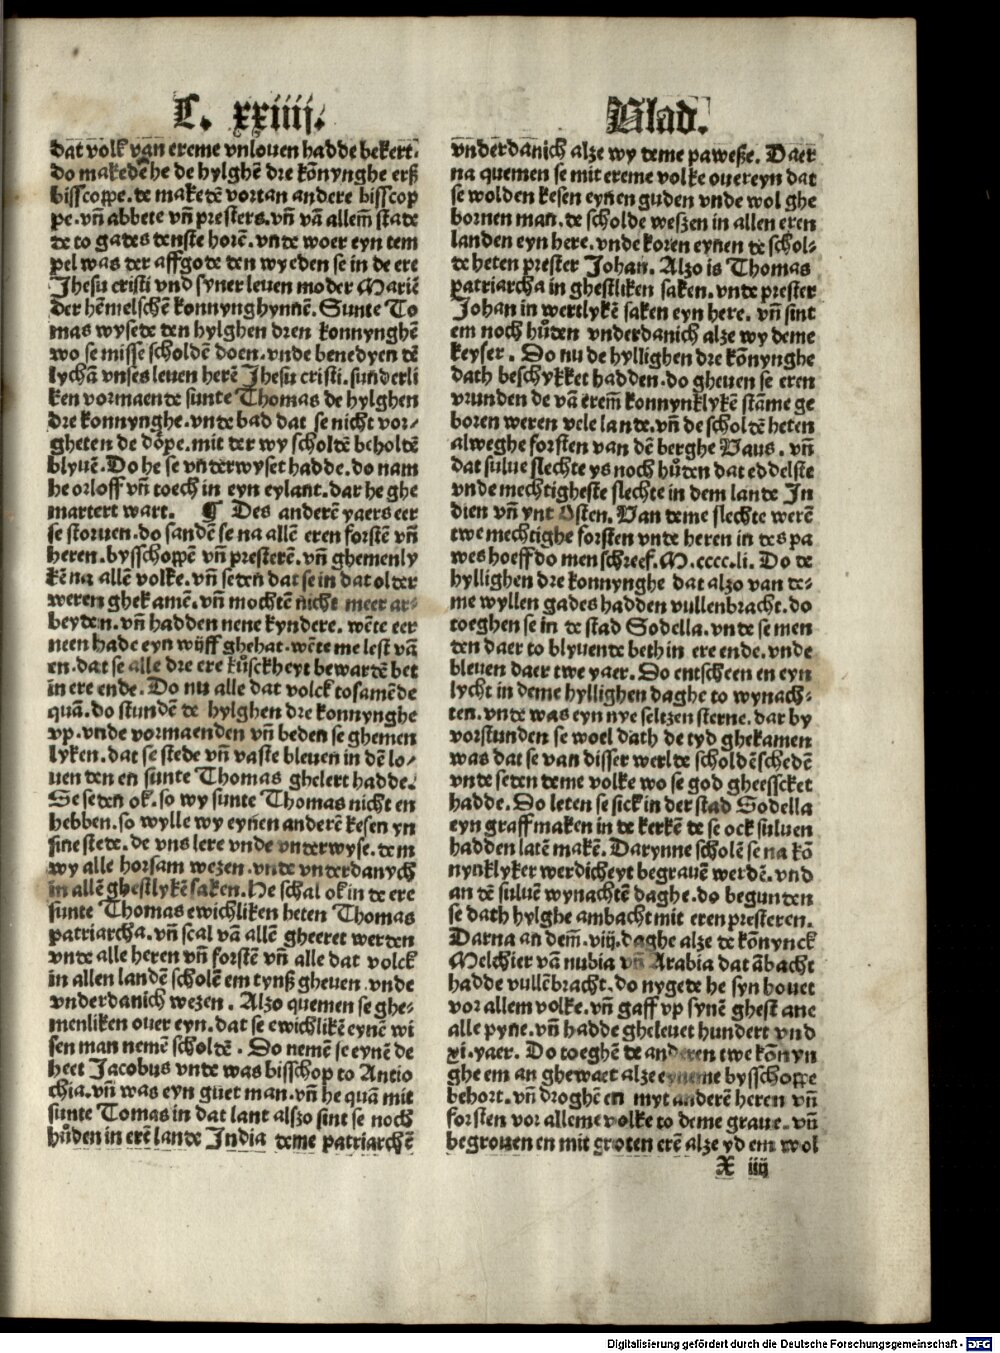 C. xxiiij. Blad.
dat volk van ereme vnlouen hadde bekert.
do makedē he de hylghē dre kōnynghe erß
bisscoppe. de makedē vortan andere bisscop
pe. vn̄ abbete vn̄ presters. vn̄ vā allem̄ stade
de to gades denste horē. vnde woer eyn tem
pel was der affgode den wyeden se in de ere
Jhesu cristi vnd syner leuen moder Mariē
der hēmelschē konnynghynnē. Sunte To
mas wysede den hylghen dren konnynghē
wo se misse scholdē doen. vnde benedyen dē
lychā vnses leuen herē Jhesu cristi. sunderli
ken vormaende sunte Thomas de hylghen
dre konnynghe. vnde bad dat se nicht vor/
gheten de dȫpe. mit der wy scholdē beholdē
blyuē. Do he se vnderwyset hadde. do nam
he orloff vn̄ toech in eyn eylant. dar he ghe
martert wart. ¶ Des anderē yaers eer
se storuen. do sandē se na allē eren forstē vn̄
heren. bysschoppē vn̄ presterē. vn̄ ghemenly
kē na allē volke. vn̄ seden dat se in dat older
weren ghekamē. vn̄ mochtē nicht meer ar-
beyden. vn̄ hadden nene kyndere. wēte eer
neen hade eyn wijff ghehat. wēte me lest vā
en. dat se alle dre ere kůsckheyt bewardē bet
in ere ende. Do nu alle dat volck tosamēde
quā. do stundē de hylghen dre konnynghe
vp. vnde vormaenden vn̄ beden se ghemen
lyken. dat se stede vn̄ vaste bleuen in dē lo/
uen den en sunte Thomas ghelert hadde.
Se seden ok. so wy sunte Thomas nicht en
hebben. so wylle wy eynen anderē kesen yn
sine stede. de vns lere vnde vnderwyse. dem
wy alle horsam wezen. vnde vnderdanych
in allē ghestlykē saken. He schal ok in de ere
sunte Thomas ewichliken heten Thomas
patriarcha. vn̄ scal vā allē gheeret werden
vnde alle heren vn̄ forstē vn̄ alle dat volck
in allen landē scholē em tynß gheuen. vnde
vnderdanich wezen. Alzo quemen se ghe-
menliken ouer eyn. dat se ewichlikē eynē wi
sen man nemē scholdē. Do nemē se eynē de
heet Jacobus vnde was bisschop to Antio
chia. vn̄ was eyn guet man. vn̄ he quā mit
sunte Tomas in dat lant alszo sint se noch
hůden in erē lande India deme patriarchē
vnderdanich alze wy deme paweße. Daer
na quemen se mit ereme volke ouereyn dat
se wolden kesen eynen guden vnde wol ghe
bornen man. de scholde weßen in allen eren
landen eyn here. vnde koren eynen de schol-
de heten prester Johan. Alzo is Thomas
patriarcha in ghestliken saken. vnde prester
Johan in wertlykē saken eyn here. vn̄ sint
em noch hůden vnderdanich alze wy deme
keyser. Do nu de hyllighen dre kōnynghe
dath beschykket hadden. do gheuen se eren
vrunden de vā erem̄ konnynklykē stāme ge
boren weren vele lande. vn̄ de scholdē heten
alweghe forsten van dē berghe Vaus. vn̄
dat sulue slechte ys noch hůden dat eddelste
vnde mechtigheste slechte in dem lande In
dien vn̄ ynt Osten. Van deme slechte werē
twe mechtighe forsten vnde heren in des pa
wes hoeff do men schreef. M.cccc.li. Do de
hyllighen dre konnynghe dat alzo van de-
me wyllen gades hadden vullenbracht. do
toeghen se in de stad Sodella. vnde se men
den daer to blyuende beth in ere ende. vnde
bleuen daer twe yaer. Do entscheen en eyn
lycht in deme hyllighen daghe to wynach-
ten. vnde was eyn nye seltzen sterne. dar by
vorstunden se woel dath de tyd ghekamen
was dat se van disser werlde scholdē schedē
vnde seden deme volke wo se god gheesscket
hadde. Do leten se sick in der stad Sodella
eyn graff maken in de kerkē de se ock suluen
hadden latē makē. Darynne scholē se na kō
nynklyker werdicheyt begrauē werdē. vnd
an dē suluē wynachtē daghe. do begunden
se dath hylghe ambacht mit eren presteren.
Darna an dem̄. viij. daghe alze de kōnynck
Melchier vā nubia vn̄ Arabia dat ābacht
hadde vullēbracht. do nygede he syn houet
vor allem volke. vn̄ gaff vp synē ghest ane
alle pyne. vn̄ hadde gheleuet hundert vnd
xi. yaer. Do toeghē de anderen twe kōnyn
ghe em an ghewaet alze eyneme bysschoppe
behort. vn̄ droghē en myt anderē heren vn̄
forsten vor alleme volke to deme graue. vn̄
begrouen en mit groten erē alze yd em wol
X iiij
Digitalisierung gefördert durch die Deutsche Forschungsgemeinschaft - DFG